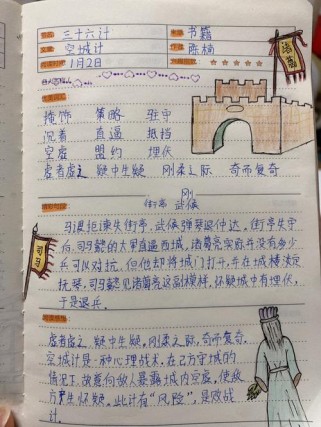 三十六计
书籍
空城计
陈楠
1月2日
诸葛
掩饰 策略 驻守
沉着 直逼 抵挡
空虚 盟约 埋伏
虚者虚之 疑中生疑 刚柔之际 奇而复奇
刚
街亭 武侯
马谡拒谏失街亭,武侯弹琴退仲达,街亭失守
后,司马懿的大军直逼西城,诸葛亮实际并没有多少
兵可以对抗,但他却将城门打开,并在城楼淡定
抚琴,司马懿见诸葛亮这副模样,怀疑城中有埋伏,
于是退兵。
司马
虚者虚之,疑中生疑,刚柔之际,奇而复奇,
空城计是一种心理战术,在己方守城的
情况下,故意向敌人暴露城内空虚,使敌
方产生怀疑,此计有“风险”,是败战
计。